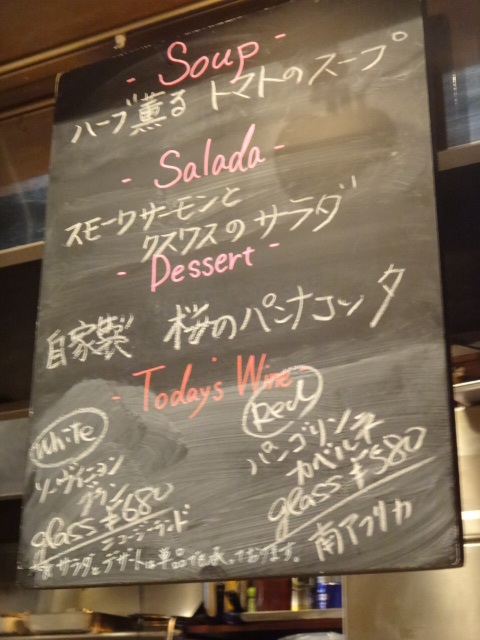 - Soup -
ハーブ薫る トマトのスープ
- Salada -
スモークサーモンと
クスクスのサラダ
- Dessert -
自家製 桜のパンナコッタ
- Today's Wine -
White
ソーヴィニヨン
ブラン
glass ¥680
ニュージーランド
Red
パンゴリン
カベルネ
glass ¥580
南アフリカ
※サラダとデザートは単品でも承っております。